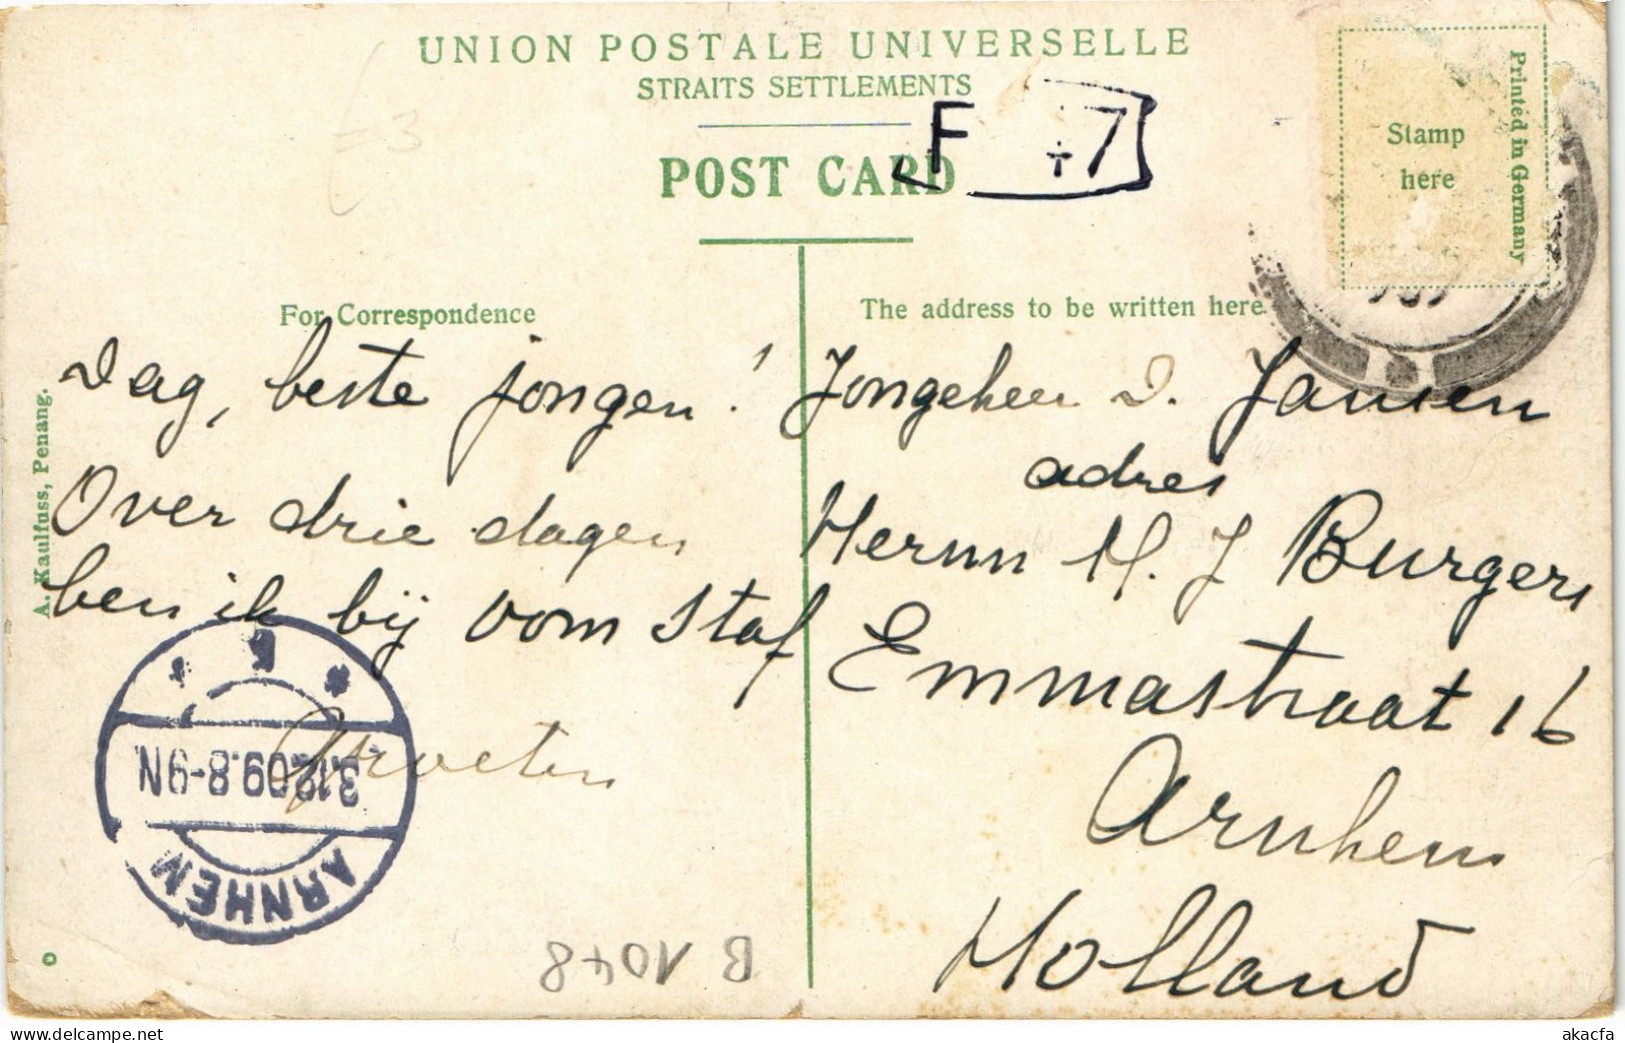 UNION POSTALE UNIVERSELLE
STRAITS SETTLEMENTS
POST CARD
F + 7
Stamp
here
Printed in Germany
=3
For Correspondence
Dag, beste jongen!
Over drie dagen
ben ik bij oom Staf
Groeten
The address to be written here
Jongeheer D. Jansen
adres
Herrn M. J Burgers
Emmastraat 16
Arnhem
Holland
A. Kaulfuss, Penang.
ARNHEM
3.12.09.8-9N
B 1048
akacfa